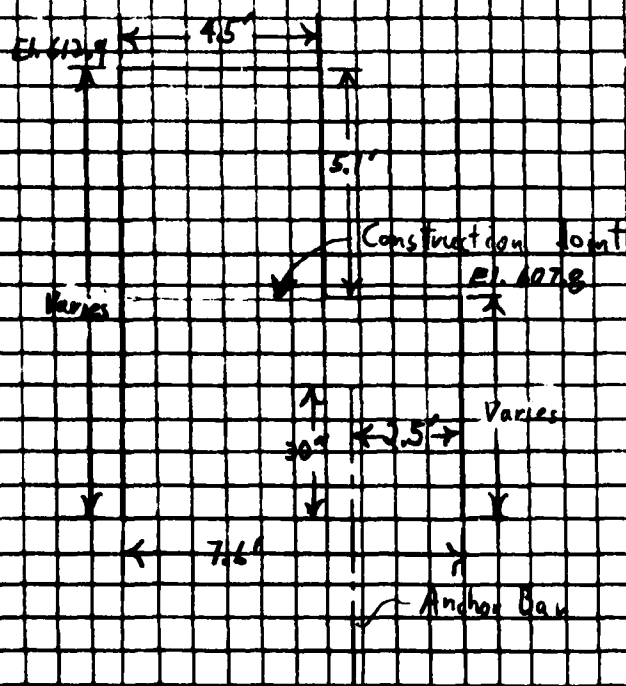 4.5'
El. 612.9
5.1'
Construction Joint
El. 607.8
Varies
Varies
30"
2.5'
7.6'
Anchor Bar